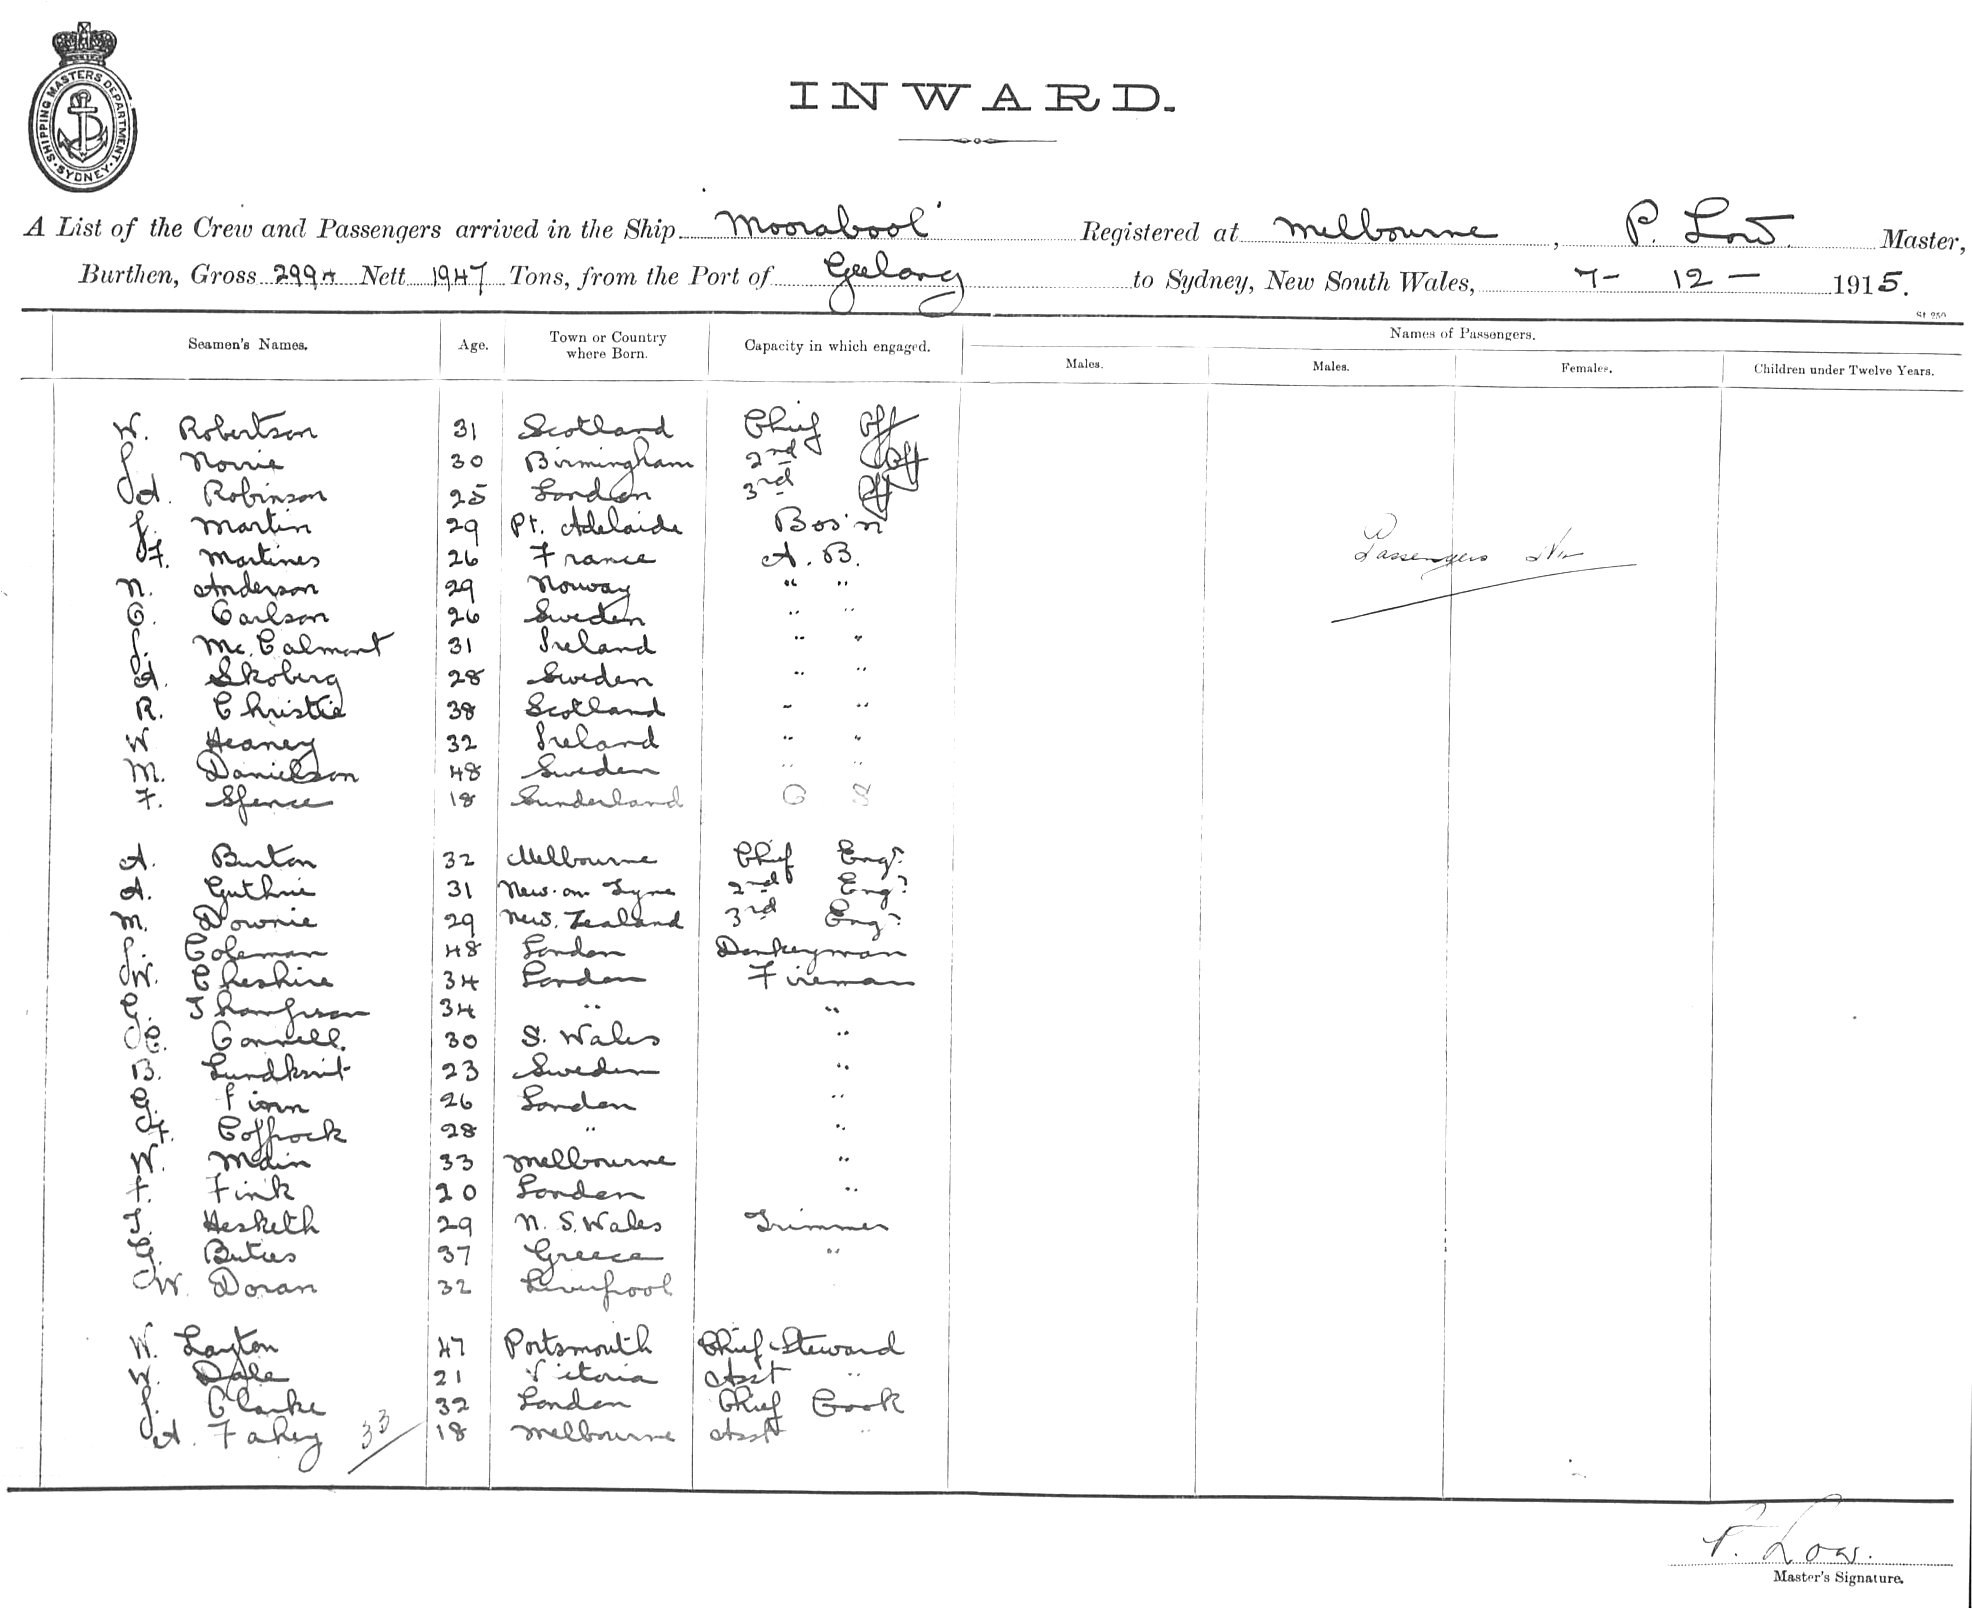 SHIPPING MASTERS DEPARTMENT · SYDNEY ·
INWARD.
A List of the Crew and Passengers arrived in the Ship "Moorabool" Registered at Melbourne, P. Low Master,
Burthen, Gross 299 Nett 1947 Tons, from the Port of Geelong to Sydney, New South Wales, 7- 12 - 1915.
Names of Passengers.
Seamen's Names. Age. Town or Country where Born. Capacity in which engaged. Males. Males. Females. Children under Twelve Years.
W. Robertson 31 Scotland Chief Off
J. Norrie 30 Birmingham 2nd Off
A. Robinson 25 London 3rd Off
J. Martin 29 Pt. Adelaide Bos'n
F. Martines 26 France A. B.
Passengers Nil
N. Anderson 29 Norway " "
C. Carlson 26 Sweden " "
J. Mc. Calmont 31 Ireland " "
A. Skoberg 28 Sweden " "
R. Christie 38 Scotland " "
W Heaney 32 Ireland " "
M. Danielson 48 Sweden " "
F. Spence 18 Sunderland O S
A. Burton 32 Melbourne Chief Engr
A. Guthrie 31 New. on Tyne 2nd Engr
M. Downie 29 New. Zealand 3rd Engr
J. Coleman 48 London Donkeyman
W. Cheshire 34 London Fireman
G. Thompson 34 " "
C. Connell. 30 S. Wales "
B. Lundkvist 23 Sweden "
G. Finn 26 London "
F. Coppock 28 " "
W. Main 33 Melbourne "
F. Fink 20 London "
T. Hesketh 29 N. S. Wales Trimmer
G. Buties 37 Greece "
W. Doran 32 Liverpool
W. Layton 47 Portsmouth Chief Steward
W. Dale 21 Victoria Asst "
J. Clarke 32 London Chief Cook
A. Fahey 33 18 Melbourne Asst "
P. Low.
Master's Signature.